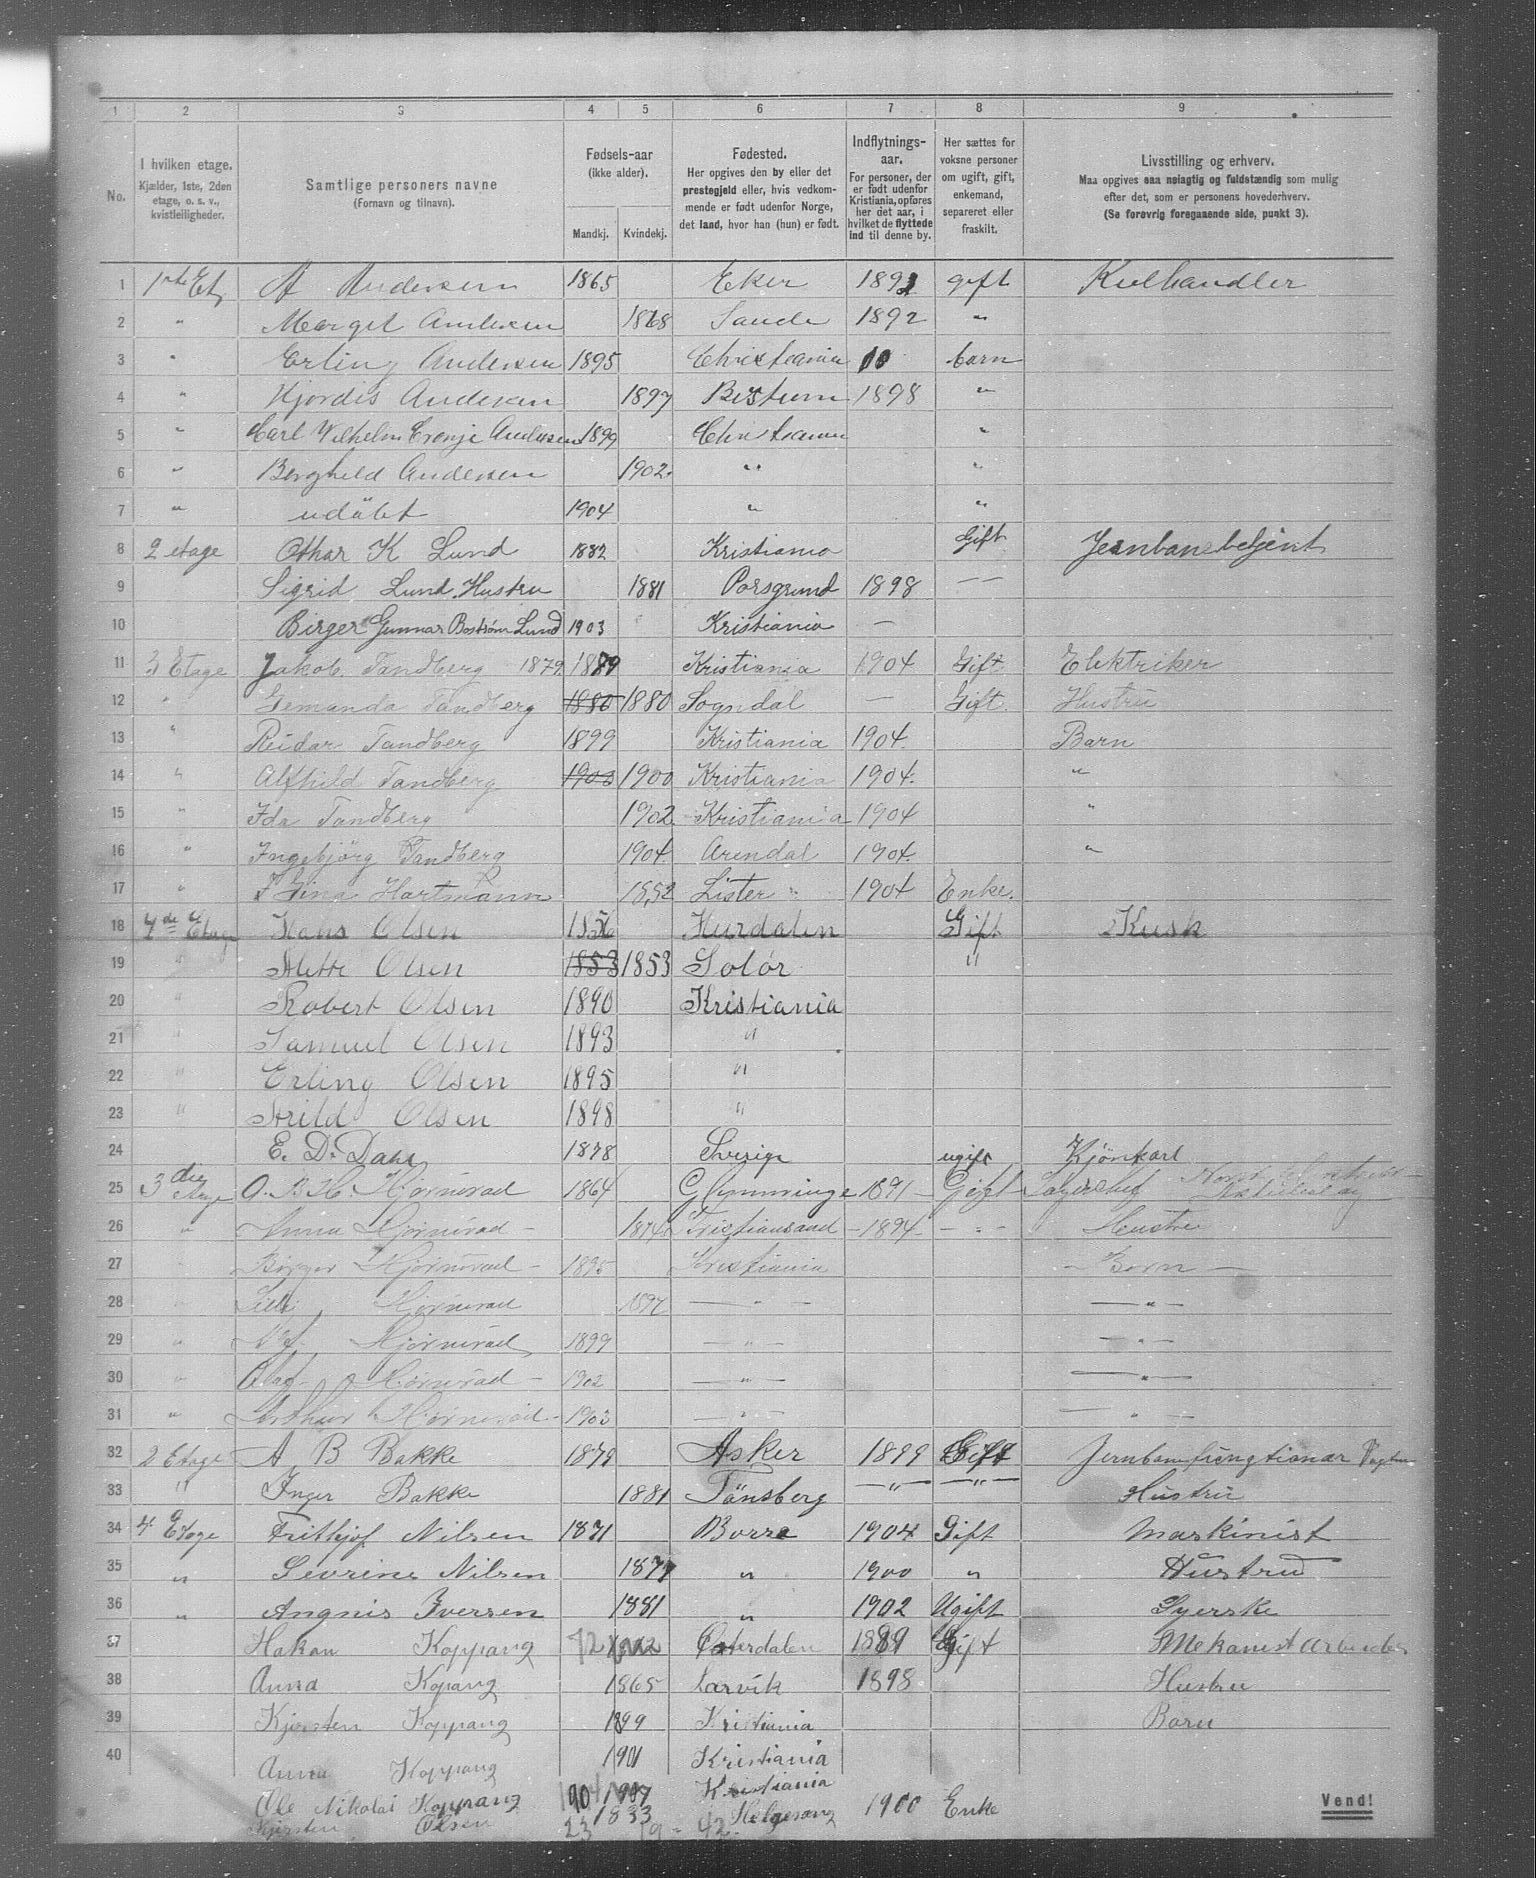 1 2 3 4 5 6 7 8 9
No.
I hvilken etage.
Kjælder, 1ste, 2den
etage, o. s. v.,
kvistleiligheder.
Samtlige personers navne
(Fornavn og tilnavn).
Fødsels-aar
(ikke alder).
Mandkj. Kvindekj.
Fødested.
Her opgives den by eller det
prestegjeld eller, hvis vedkom-
mende er født udenfor Norge,
det land, hvor han (hun) er født.
Indflytnings-
aar.
For personer, der
er født udenfor
Kristiania, opføres
her det aar, i
hvilket de flyttede
ind til denne by.
Her sættes for
voksne personer
om ugift, gift,
enkemand,
separeret eller
fraskilt.
Livsstilling og erhverv.
Maa opgives saa nøiagtig og fuldstændig som mulig
efter det, som er personens hovederhverv.
(Se forøvrig foregaaende side, punkt 3).
1 1ste Et. A Andersen 1865 Eker gift Kulhandler
2 " Margit Andersen 1868 Sande 1892 "
3 " Erling Andersen 1895 Christiania barn
4 " Hjørdis Andersen 1897 Bestum 1898 "
5 " Carl Wilhelm Cronje Andersen 1899 Christiania "
6 " Borghild Andersen 1902 " "
7 " udöbt 1904 " "
8 2 etage Othar K Lund 1882 Kristiania Gift Jernbanebetjent
9 Sigrid Lund Hustru 1881 Porsgrund 1898 — —
10 Birger Gunnar Boström Lund 1903 Kristiania —
11 3 Etage Jakob Tandberg 1879 Kristiania 1904 Gift Elektriker
12 " Gemanda Tandberg 1880 1880 Sogndal — Gift. Hustru
13 " Reidar Tandberg 1899 Kristiania 1904. Barn
14 " Alfhild Tandberg 1900 1900 Kristiania 1904. "
15 " Ida Tandberg 1902 Kristiania 1904 "
16 " Ingebjörg Tandberg 1904. Arendal 1904. "
17 " Gina Hartmann 1852 Lister 1904 Enke.
18 4de Etage Hans Olsen 1856 Hurdalen Gift Kusk
19 " Mette Olsen 1853 1853 Solör "
20 " Robert Olsen 1890 Kristiania
21 " Samuel Olsen 1893 "
22 " Erling Olsen 1895 "
23 " Arild Olsen 1898 "
24 E. D. Dahl 1878 Sverige ugift
25 3die Etage O. B. H. Hjørnerød 1864 Glemminge 1891 Gift
26 " Anna Hjørnerød 1874 Kristiansand 1894 — " — Hustru
27 Birger Hjørnerød 1895 Kristiania Børn
28 Hjørnerød 1897 — " — — " —
29 " Hjørnerød 1899 — " — — " —
30 " Olaf Hjørnerød 1902 — " — — " —
31 " Arthur Hjørnerød 1903 — " — — " —
32 2 Etage A B Bakke 1879 Asker 1899 Gift
33 " Inger Bakke 1881 Tönsberg — " — — " — Hustru
34 4 Etage Frithjof Nilsen 1871 Borre 1904 Gift Maskinist
35 " Sevrine Nilsen " 1900 " Hustru
36 " Angnis Iversen 1881 " 1902 Ugift Syerske
37 Hakon Koppang Østerdalen 1889 Gift
38 Anna Kopang 1865 Larvik 1898 Hustru
39 Kjersten Koppang 1899 Kristiania Barn
40 Anna Koppang 1901 Kristiania
Ole Nikolai Koppang 1904 Kristiania
Kjersten Olsen 1833 Helgesang 1900 Enke
Vend!